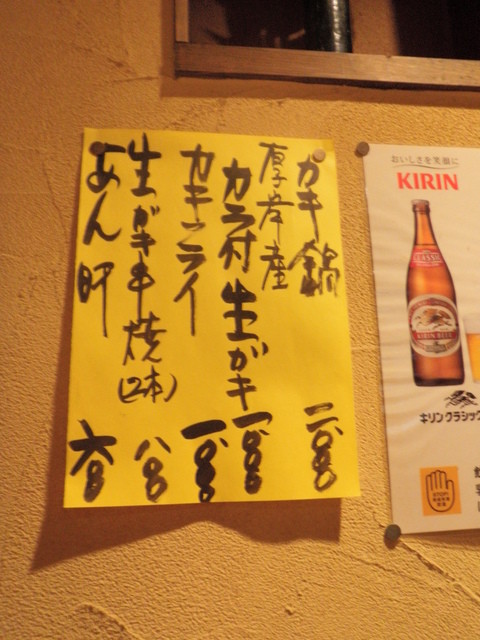 カキ鍋 二、〇〇〇
厚岸産
カラ付生ガキ 一、〇〇〇
カキフライ 一、〇〇〇
生ガキ串焼(2本) 八〇〇
あん肝 六〇〇
おいしさを笑顔に
KIRIN
CLASSIC
KIRIN BEER
キリンクラシック
STOP!
飲